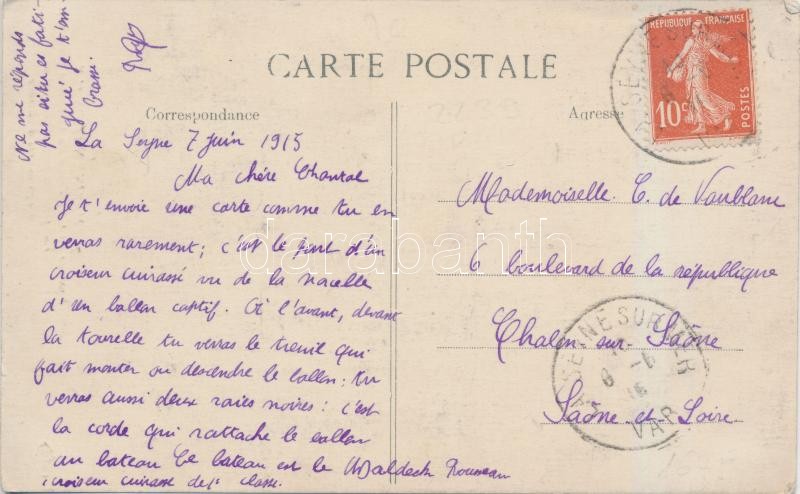 Ne me réponds
pas si tu es fati-
gué je t'em-
brasse.
CARTE POSTALE
Correspondance
Adresse
RÉPUBLIQUE FRANÇAISE
10c
POSTES
La Seyne 7 juin 1915
Ma chère Chantal
Je t'envoie une carte comme tu en
verras rarement; c'est le pont d'un
croiseur cuirassé vu de la nacelle
d'un ballon captif. A l'avant, devant
la tourelle tu verras le treuil qui
fait monter ou descendre le ballon: tu
verras aussi deux raies noires: c'est
la corde qui rattache le ballon
au bateau Ce bateau est le Waldeck Rousseau
croiseur cuirassé de 1e classe.
Mademoiselle C. de Vaublanc
6 boulevard de la république
Chalon-sur-Saône
Saône-et-Loire
LA SEYNE SUR MER
VAR
darabanth